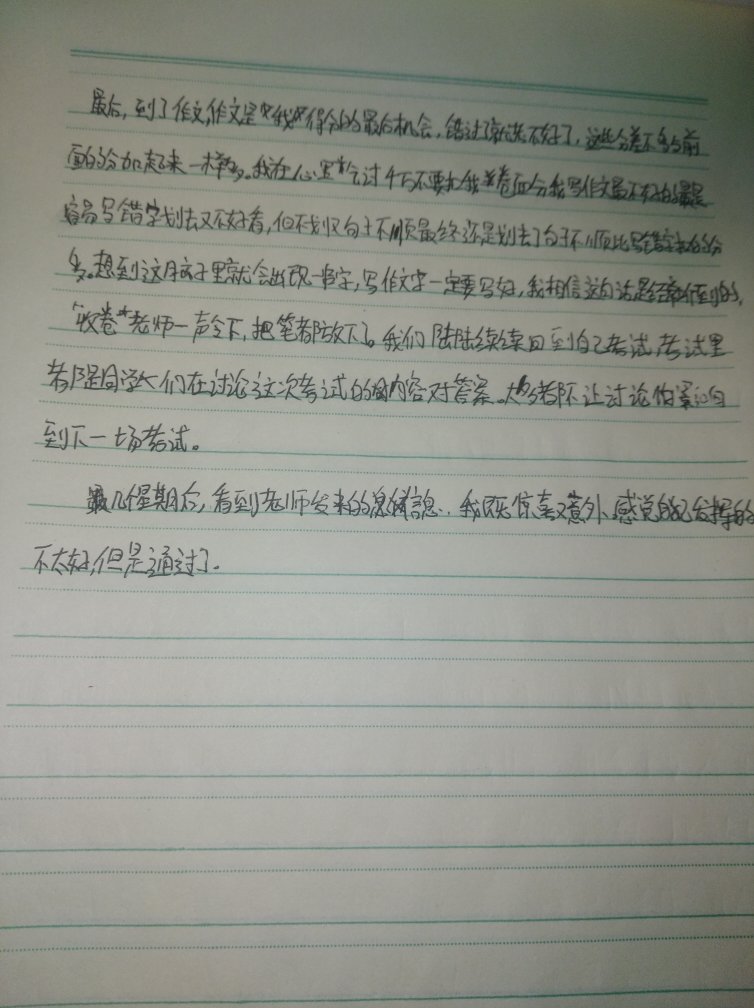 最后,到了作文,作文是我得分的最后机会,错过了就考不好了,这些分差不多与前
面的分加起来一样多。我在心里 过千万不要扣我卷面分我写作文最不好的是
容易写错字划去又不好看,但不划又句子不顺最终还是划去了句子不顺比写错字扣的分
多。想到这月 子里就会出现一些字,写作文字一定要写好,我相信这句话是 的,
"收卷"老师一声令下,把笔都放下了。我们陆陆续续回到自己考试,考试里
都是同学们在讨论这次考试的内容对答案。大多都不让讨论怕影响
到下一场考试。
几个星期后,看到老师发来的信息,我既惊喜又意外,感觉自己发挥的
不太好,但是通过了。